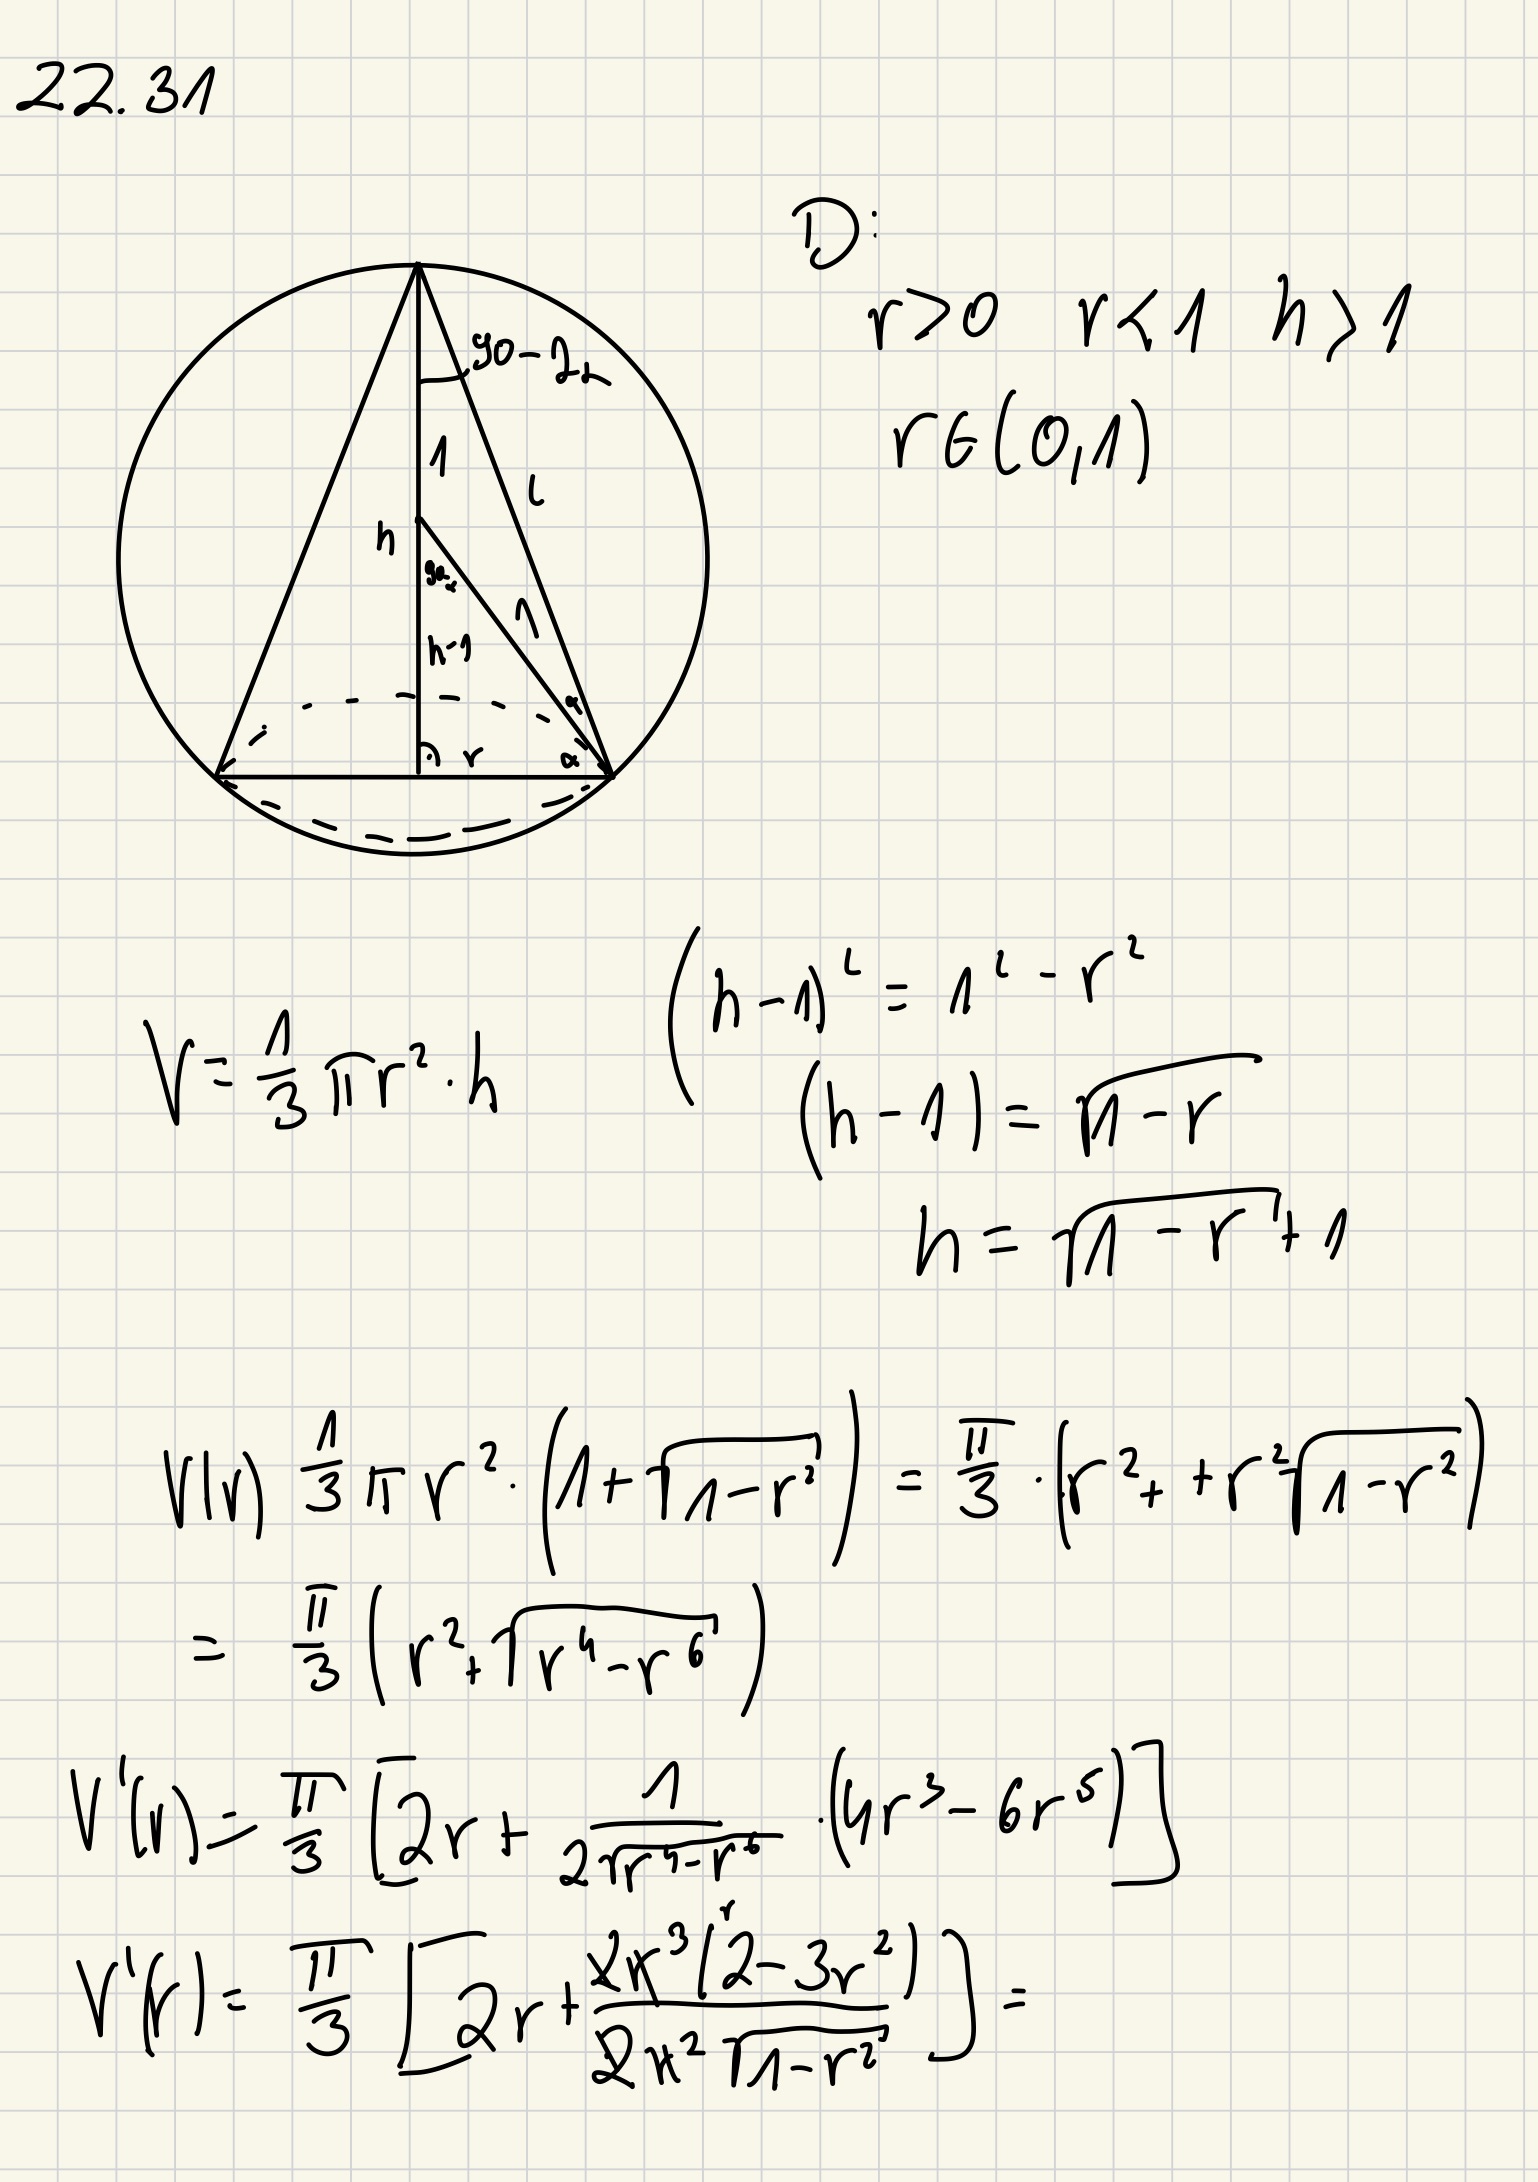 22.31
D:
r>0 r<1 h>1
r∈(0,1)
90-2α
1
l
h
90-α
1
h-1
α
r
α
V = 1/3 πr² · h
(h-1)² = 1² - r²
(h-1) = √(1-r)
h = √(1-r) + 1
V(r) 1/3 πr² · (1+√(1-r²)) = π/3 · (r²+ +r²√(1-r²))
= π/3 (r²+√(r⁴-r⁶))
V'(r) = π/3 [2r + 1/(2√(r⁴-r⁶)) · (4r³-6r⁵)]
V'(r) = π/3 [2r + 2r³ r (2-3r²)/(2r²√(1-r²))] =